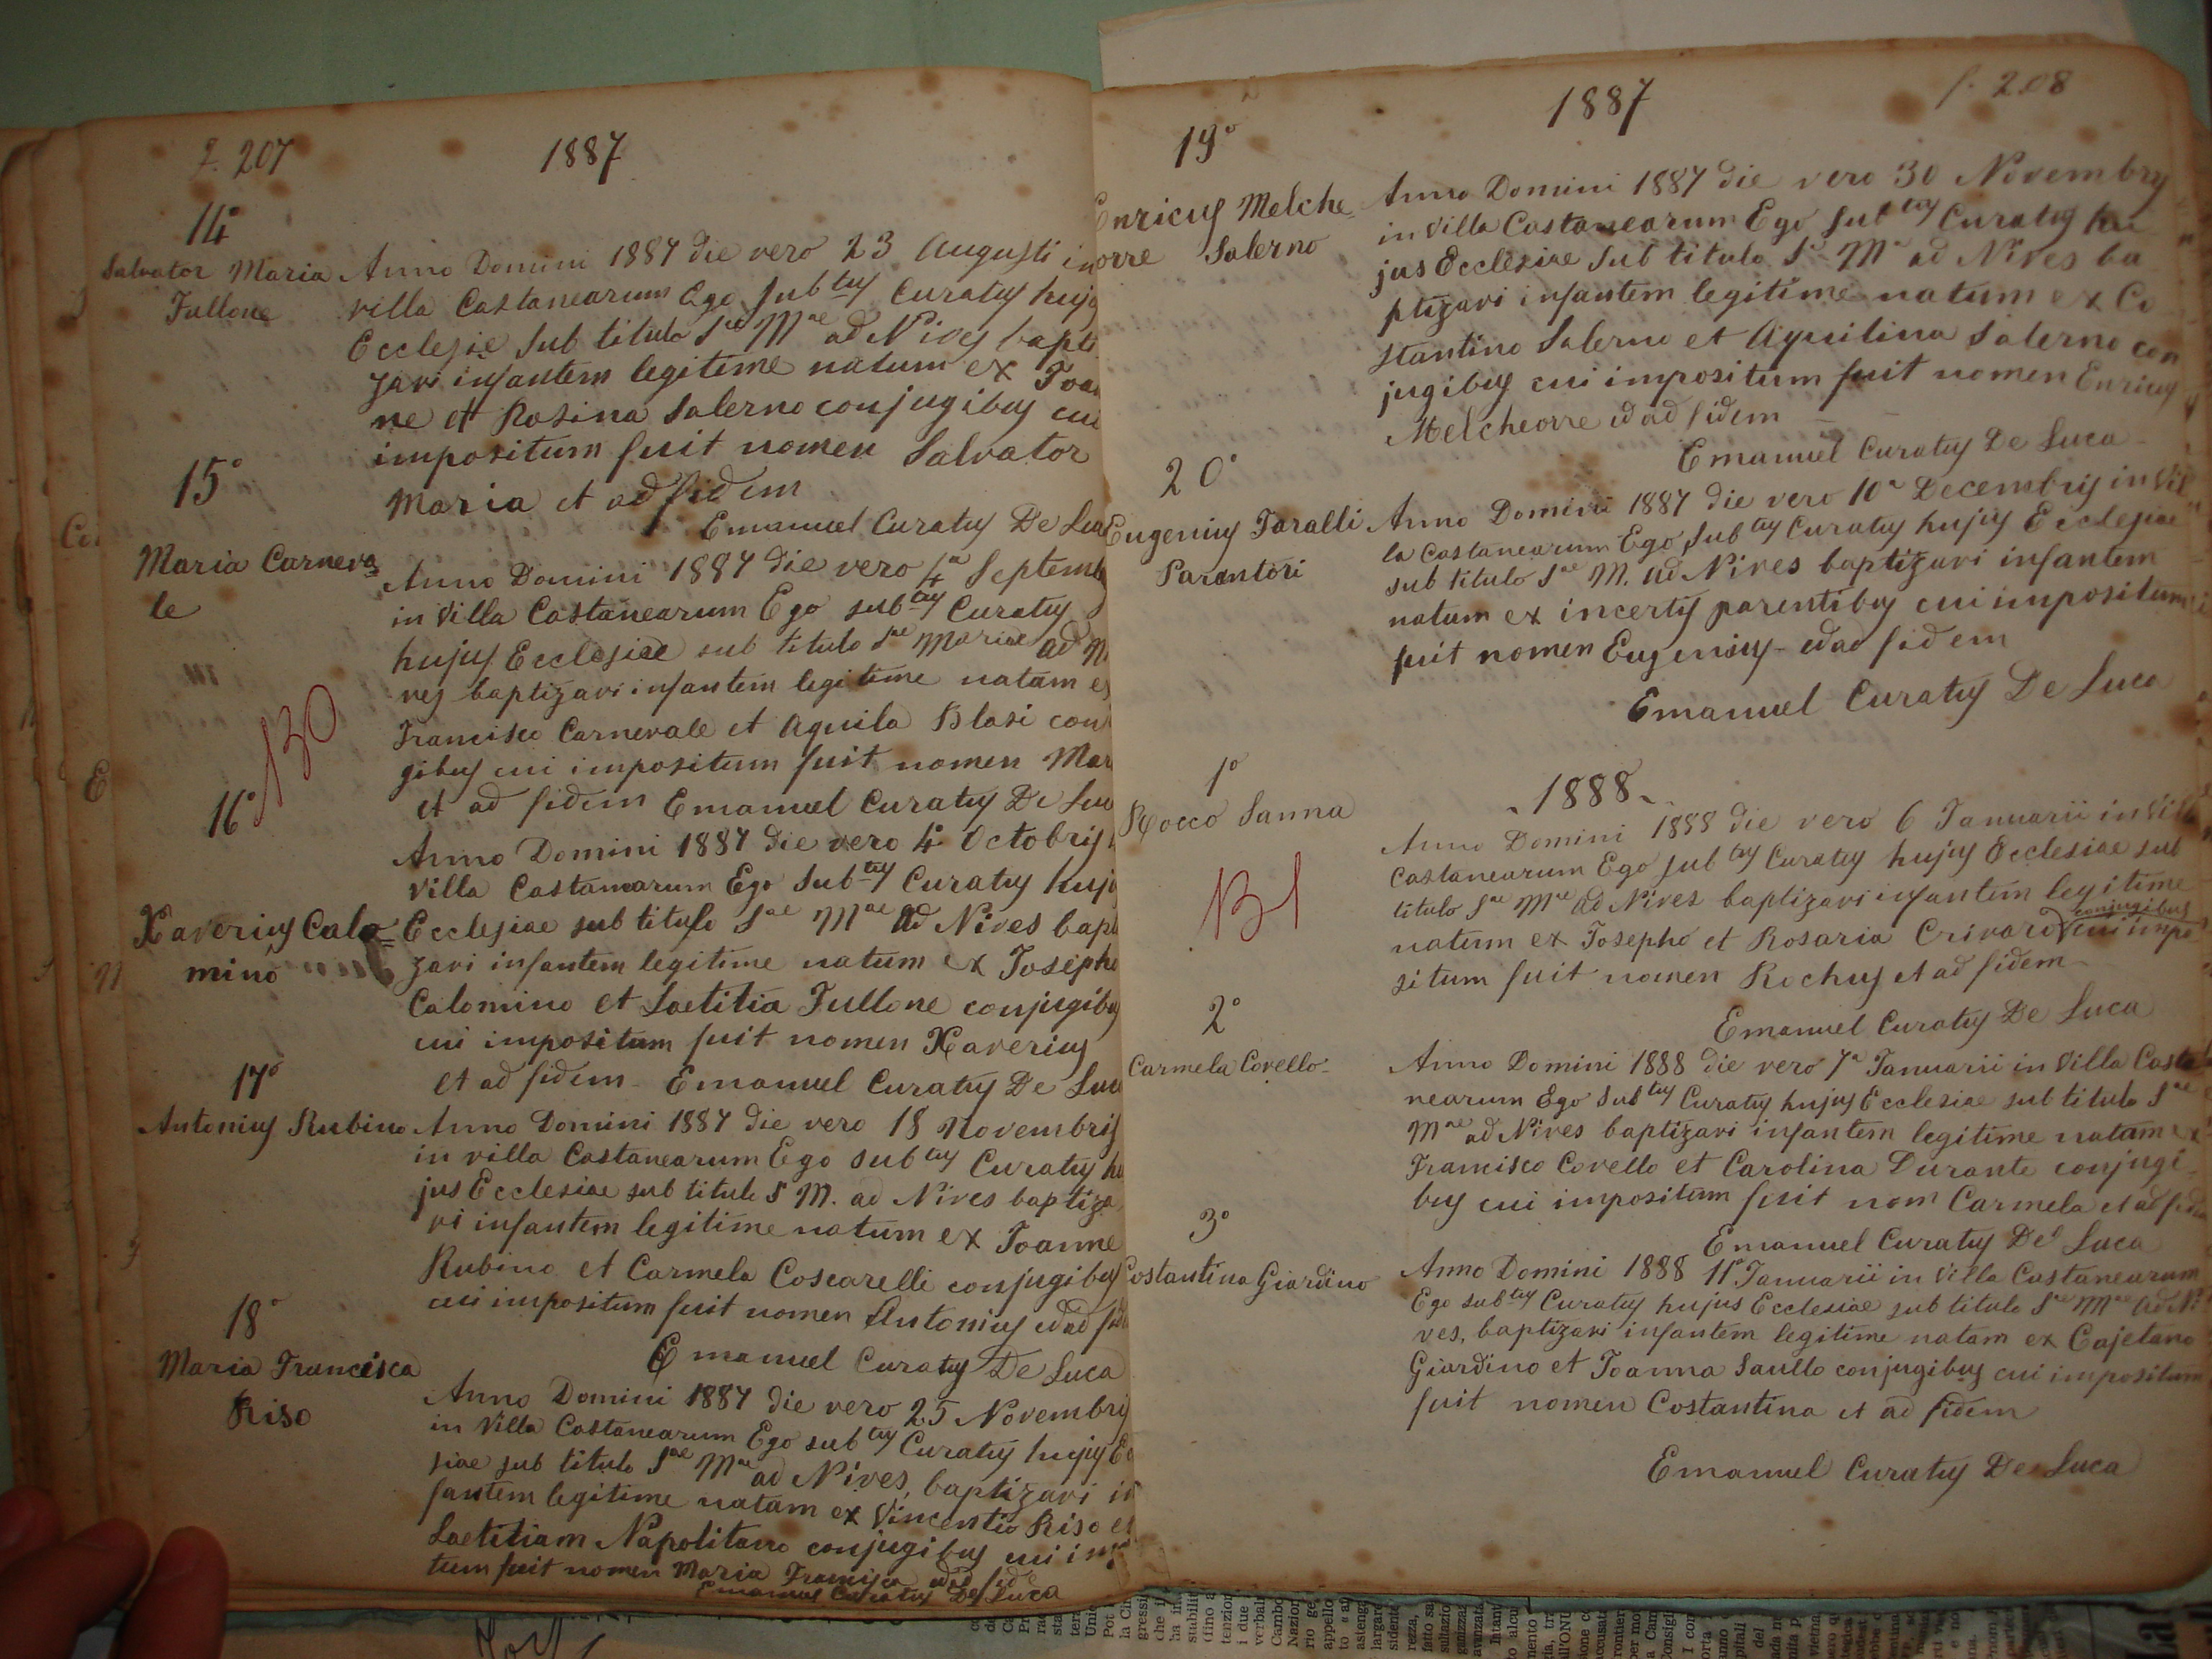 f. 207
1887
14°
Salvator Maria
Fullone
Anno Domini 1887 die vero 23 Augusti in
villa Castanearum Ego subtus Curatus huju
Ecclesie sub titulo Sae Mae ad Nives bapti
zavi infantem legitime natum ex Joan
ne et Rosina Salerno conjugibus cui
impositum fuit nomen Salvator
Maria et ad fidem
Emanuel Curatus De Luca
15°
Maria Carneva=
le
Anno Domini 1887 die vero 4a Septemb
in Villa Castanearum Ego subtus Curatus
hujus Ecclesiae sub titulo Sae Mariae ad Ni
ves baptizavi infantem legitime natam ex
Francisco Carnevale et Aquila Blasi conj
gibus cui impositum fuit nomen Mar
et ad fidem Emanuel Curatus De Luc
130
16°
Xaverius Calo=
mino
Anno Domini 1887 die vero 4° Octobris
villa Castanearum Ego Subtus Curatus huj
Ecclesiae sub titulo Sae Mae ad Nives bapt
zavi infantem legitime natum ex Josepho
Calomino et Laetitia Fullone conjugibus
cui impositum fuit nomen Xaverius
et ad fidem - Emanuel Curatus De Luc
17°
Antonius Rubino
Anno Domini 1887 die vero 18 Novembris
in villa Castanearum Ego subtus Curatus hu
jus Ecclesiae sub titulo S M. ad Nives baptiza
vi infantem legitime natum ex Joanne
Rubino et Carmela Coscarelli conjugibus
cui impositum fuit nomen Antonius et ad fid
Emanuel Curatus De Luca
18°
Maria Francisca
Riso
Anno Domini 1887 die vero 25 Novembris
in Villa Castanearum Ego subtus Curatus hujus Ec
siae sub titulo Sae Mae ad Nives, baptizavi in
fantem legitime natam ex Vincentio Riso et
Laetitiam Napolitano conjugibus cui im
tum fuit nomen Maria Francisca et ad fid
Emanuel Curatus De Luca
f. 208
1887
19°
Enricus Melche=
orre Salerno
Anno Domini 1887 die vero 30 Novembris
in Villa Castanearum Ego subtus Curatus hu
jus Ecclesiae sub titulo Sae Mae ad Nives ba
ptizavi infantem legitime natum ex Co
stantino Salerno et Aquilina Salerno con
jugibus cui impositum fuit nomen Enricus
Melcheorre et ad fidem
Emanuel Curatus De Luca
20°
Eugenius Taralli
Parentori
Anno Domini 1887 die vero 10a Decembris in Vil
la Castanearum Ego subtus Curatus hujus Ecclesiae
sub titulo Sae M. ad Nives baptizavi infantem
natum ex incertis parentibus cui impositum
fuit nomen Eugenius - et ad fidem
Emanuel Curatus De Luca
- 1888 -
1°
Rocco Sanna
131
Anno Domini 1888 die vero 6 Januarii in Villa
Castanearum Ego subtus Curatus hujus Ecclesiae sub
titulo Sae Mae ad Nives baptizavi infantem legitime
natum ex Josepho et Rosaria Crivaro conjugibus cui impo
situm fuit nomen Rochus et ad fidem
Emanuel Curatus De Luca
2°
Carmela Covello
Anno Domini 1888 die vero 7a Januarii in Villa Casta
nearum Ego Subtus Curatus hujus Ecclesiae sub titulo Sae
Mae ad Nives baptizavi infantem legitime natam ex
Francisco Covello et Carolina Durante conjugi
bus cui impositum fuit nom Carmela et ad fidem
Emanuel Curatus De Luca
3°
Costantina Giardino
Anno Domini 1888 11° Januarii in Villa Castanearum
Ego subtus Curatus hujus Ecclesiae sub titulo Sae Mae ad Ni
ves, baptizavi infantem legitime natam ex Cajetano
Giardino et Joanna Saullo conjugibus cui impositum
fuit nomen Costantina et ad fidem
Emanuel Curatus De Luca